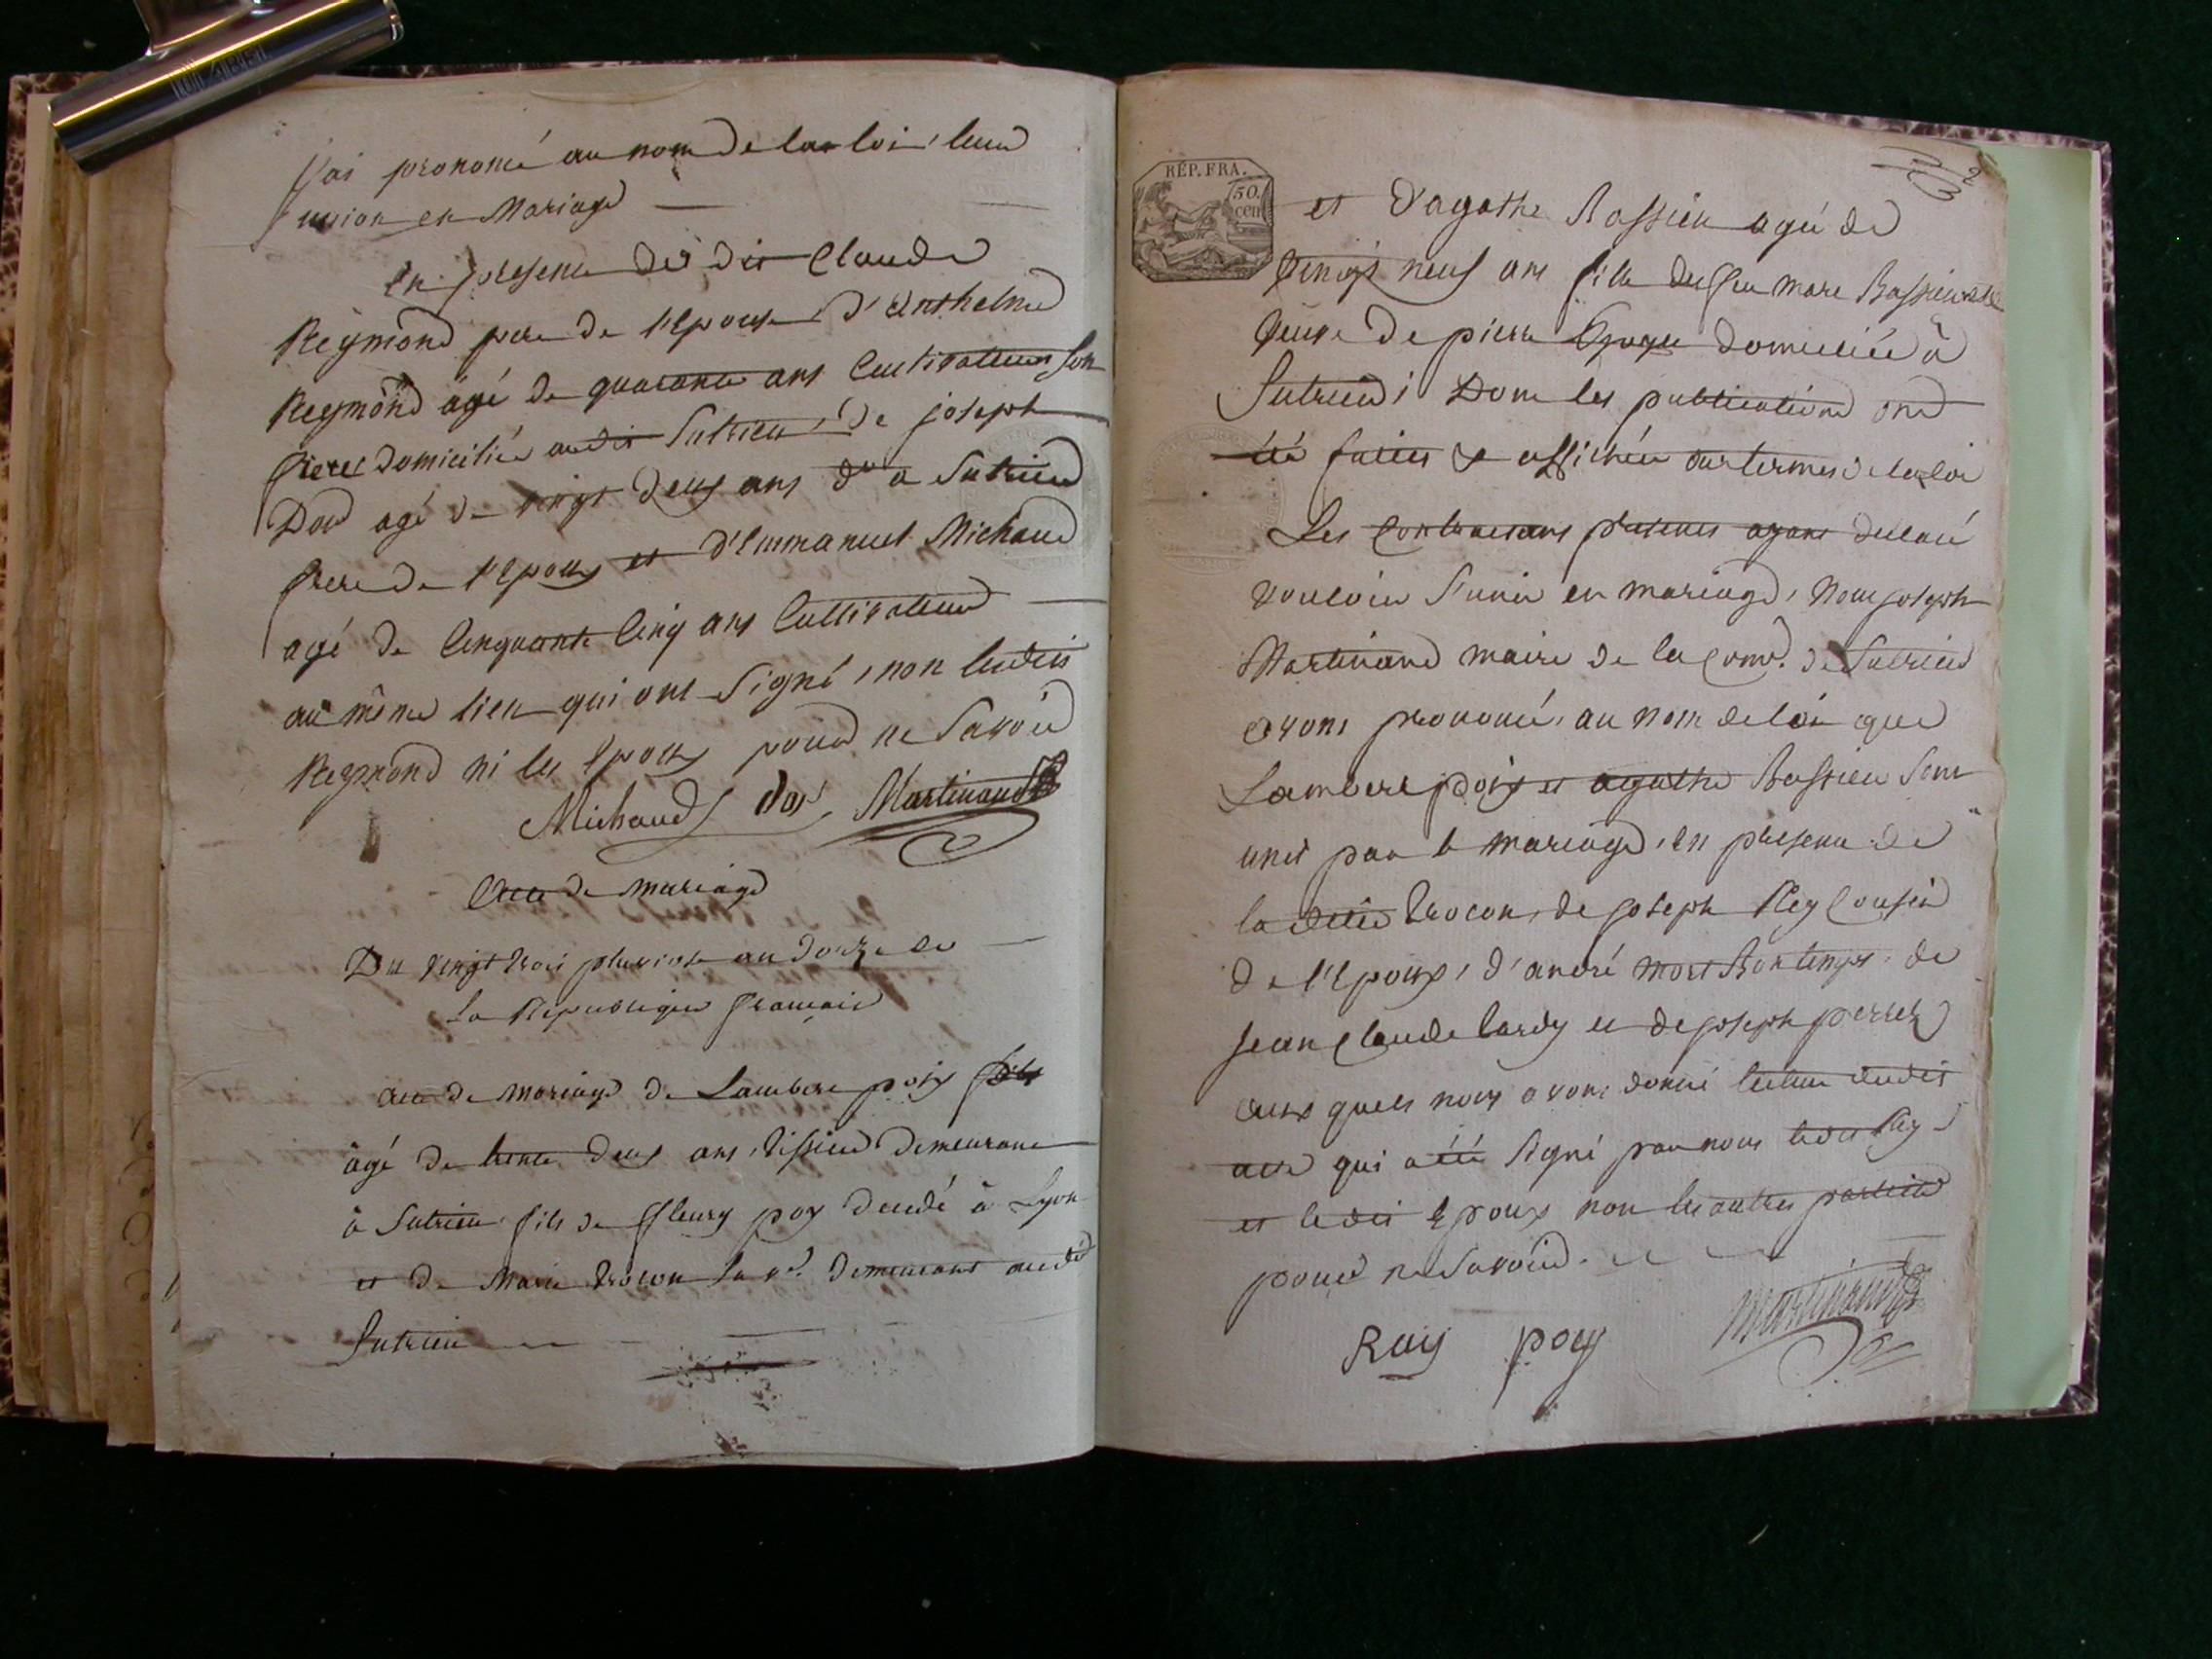 j'ai prononcé au nom de la loi leur
union en Mariage
en presence des dit Claude
Reymond pere de l'Epouse, d'Anthelme
Reymond agé de quarante ans Cultivateur son
frere domicilié audit Sutrieu, de joseph
Dor agé de vingt deux ans d.t a Sutrieu
frere de l'Epoux et d'Emmanuel Michaud
agé de Cinquante Cinq ans Cultivateur
au même lieu qui ont Signé, non ledit
Reymond ni les Epoux pour ne Savoir
Michaud dor Martinand
Acte de mariage
Du vingt trois pluviose an douze de
La Republique francaise
acte de mariage de Lambert poix fils
âgé de trente deux ans, tissier demeurant
à Sutrieu fils de fleury poy decedé à Lyon
et de Marie trocon sa v.e demeurant audit
Sutrieu
RÉP. FRA.
50.
cen
et d'agathe Bassieu agée de
vingt neuf ans fille de feu marc Bassieu et
veuve de pierre domiciliée à
Sutrieu; Dont les publications ont
été faites et affichées aux termes de la loi
Les Contractans presents ayant declaré
vouloir S'unir en mariage, Nous joseph
Martinand maire de la Com.e de Sutrieu
avons prononcé, au nom de loi que
Lambert poix et agathe Bassieu Sont
unis par le mariage, en presence de
la dite trocon, de joseph Rey Cousin
de l'Epoux, d'andré mort Bontemps, de
jean Claude lardy et de joseph perret
aux quels nous avons donné lecture dudit
acte qui a été Signé par nous ledit Rey
et ledit Epoux non les autres parties
pour ne Savoir.
Rey poy Martinand